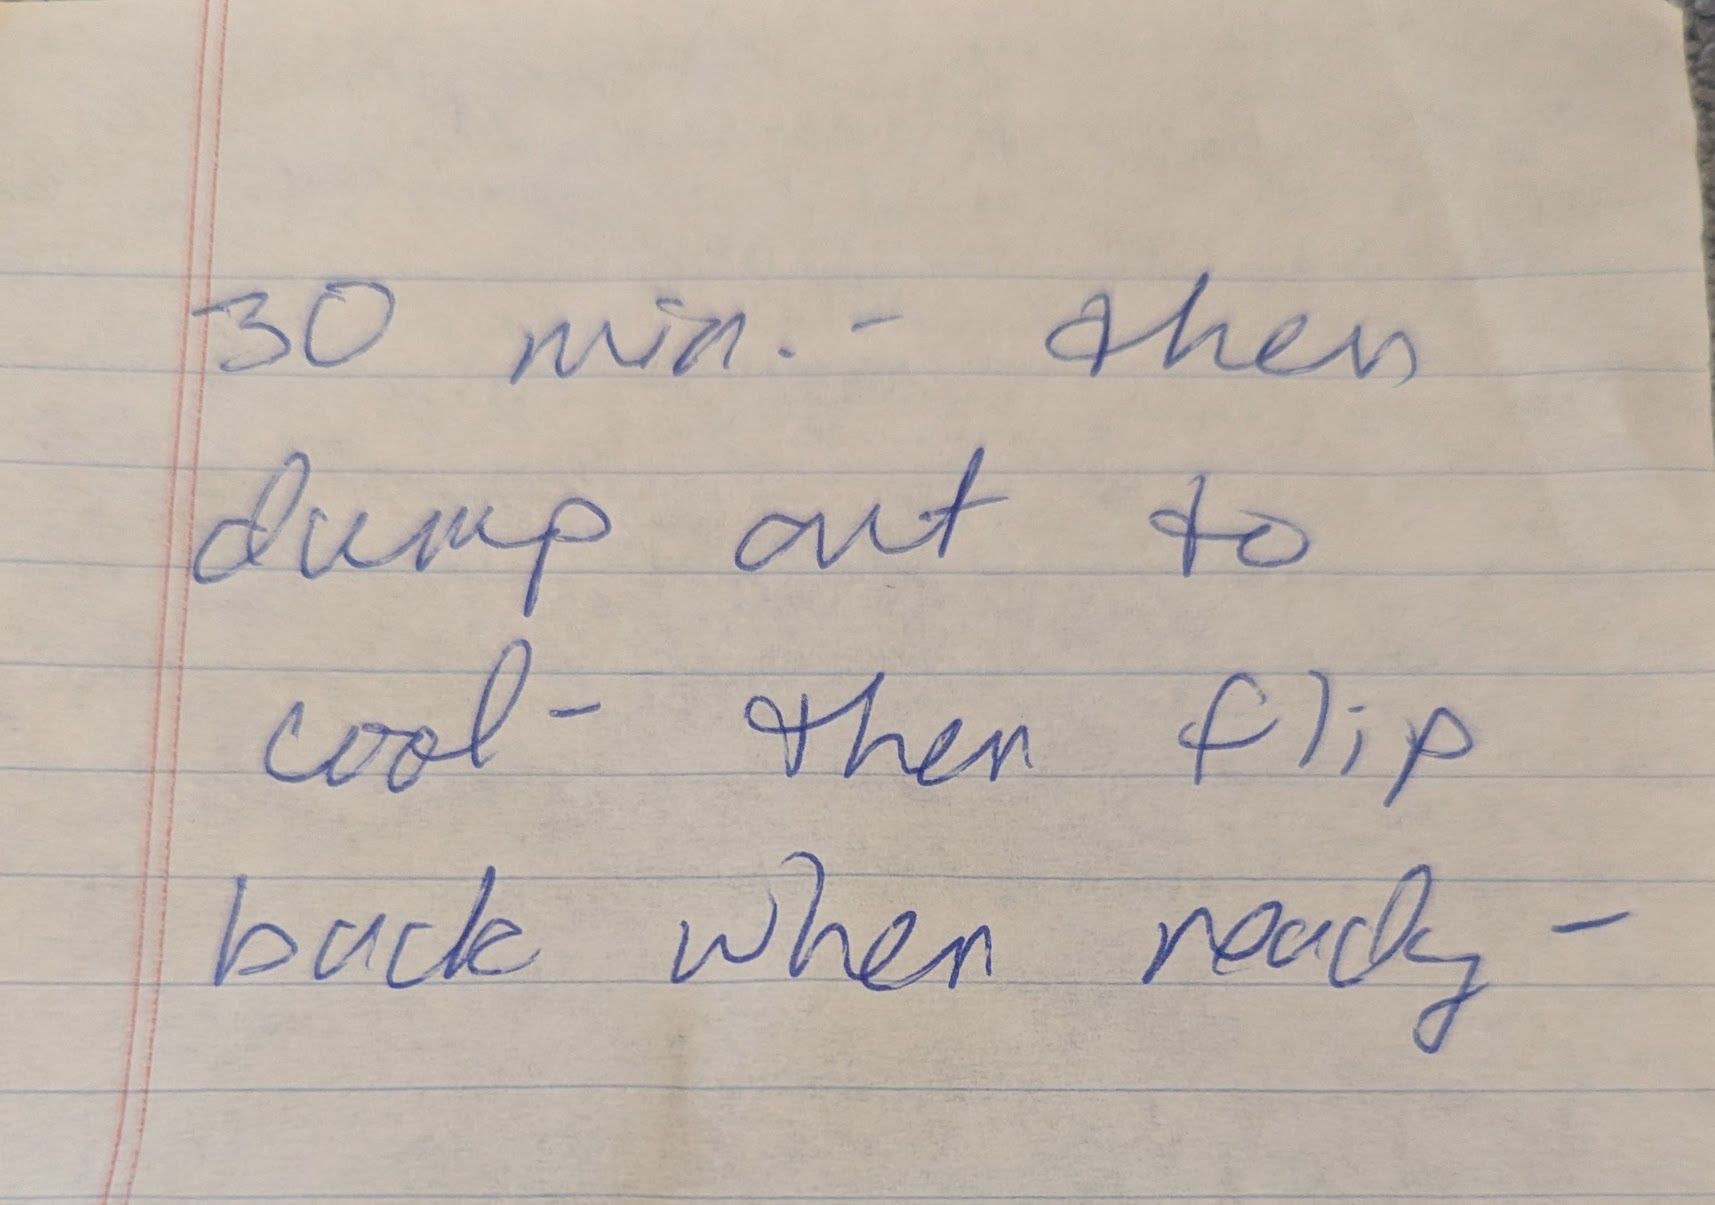 30 min. - then
dump out to
cool - then flip
back when ready -